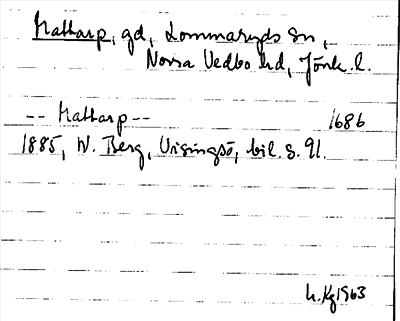 Hattarp, gd, Lommaryds sn,
Norra Vedbo hd, Jönk. l.
-- Hattarp -- 1686
1885, W. Berg, Visingsö, bil. s. 91.
1963